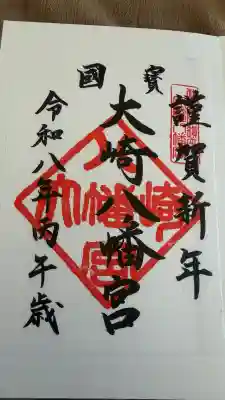 國寳
謹賀新年
大崎八幡宮
令和八年丙午歳
大崎八幡宮